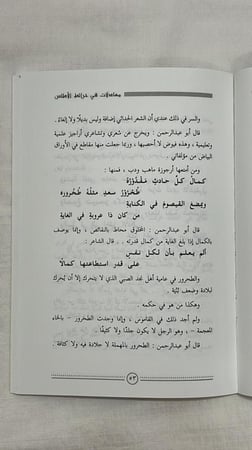 معادلات في خرائط الأطلس
والسر في ذلك عندي أن الشعر الحداثي إضافة وليس بديلًا ولا إلغاءً .
قال أبو عبدالرحمن : ويخرج عن شعري وتشاعري أراجيز علمية
وتعليمية ، وهذه فيوض لا أحصيها ، وربما جعلت منها مقاطع في الأوراق
البياض من مؤلفاتي .
ومن أمتعها أرجوزة ماهب ودب ، فمنها :
كمال كل حادث مقدوره
طحرور سعد مثله طحروره
ويمضغ القيصوم في الكتابة
من كان ذا عروبة في الغاية
قال أبو عبدالرحمن : المخلوق محاط بالنقائص ، وإنما يوصف
بالكمال إذا بلغ الغاية من كمال قدرته .. قال الشاعر :
ألم يعلم بأن لكل نفس
على قدر استطاعتها كمالا
والطحرور في عامية أهل نجد الصبي الذي لا يتحرك إلا أن يُحرك
لبلادة وضعف بُنيّة .
وهكذا من هو في حكمه .
ولم أجد ذلك في القاموس ، وإنما وجدت الطخرور – بالخاء
المعجمة – ، وهو الرجل لا يكون جلدًا ولا كثيفًا .
قال أبو عبدالرحمن : الطحرور بالمهملة لا جلادة فيه ولا كثافة .
٥٣